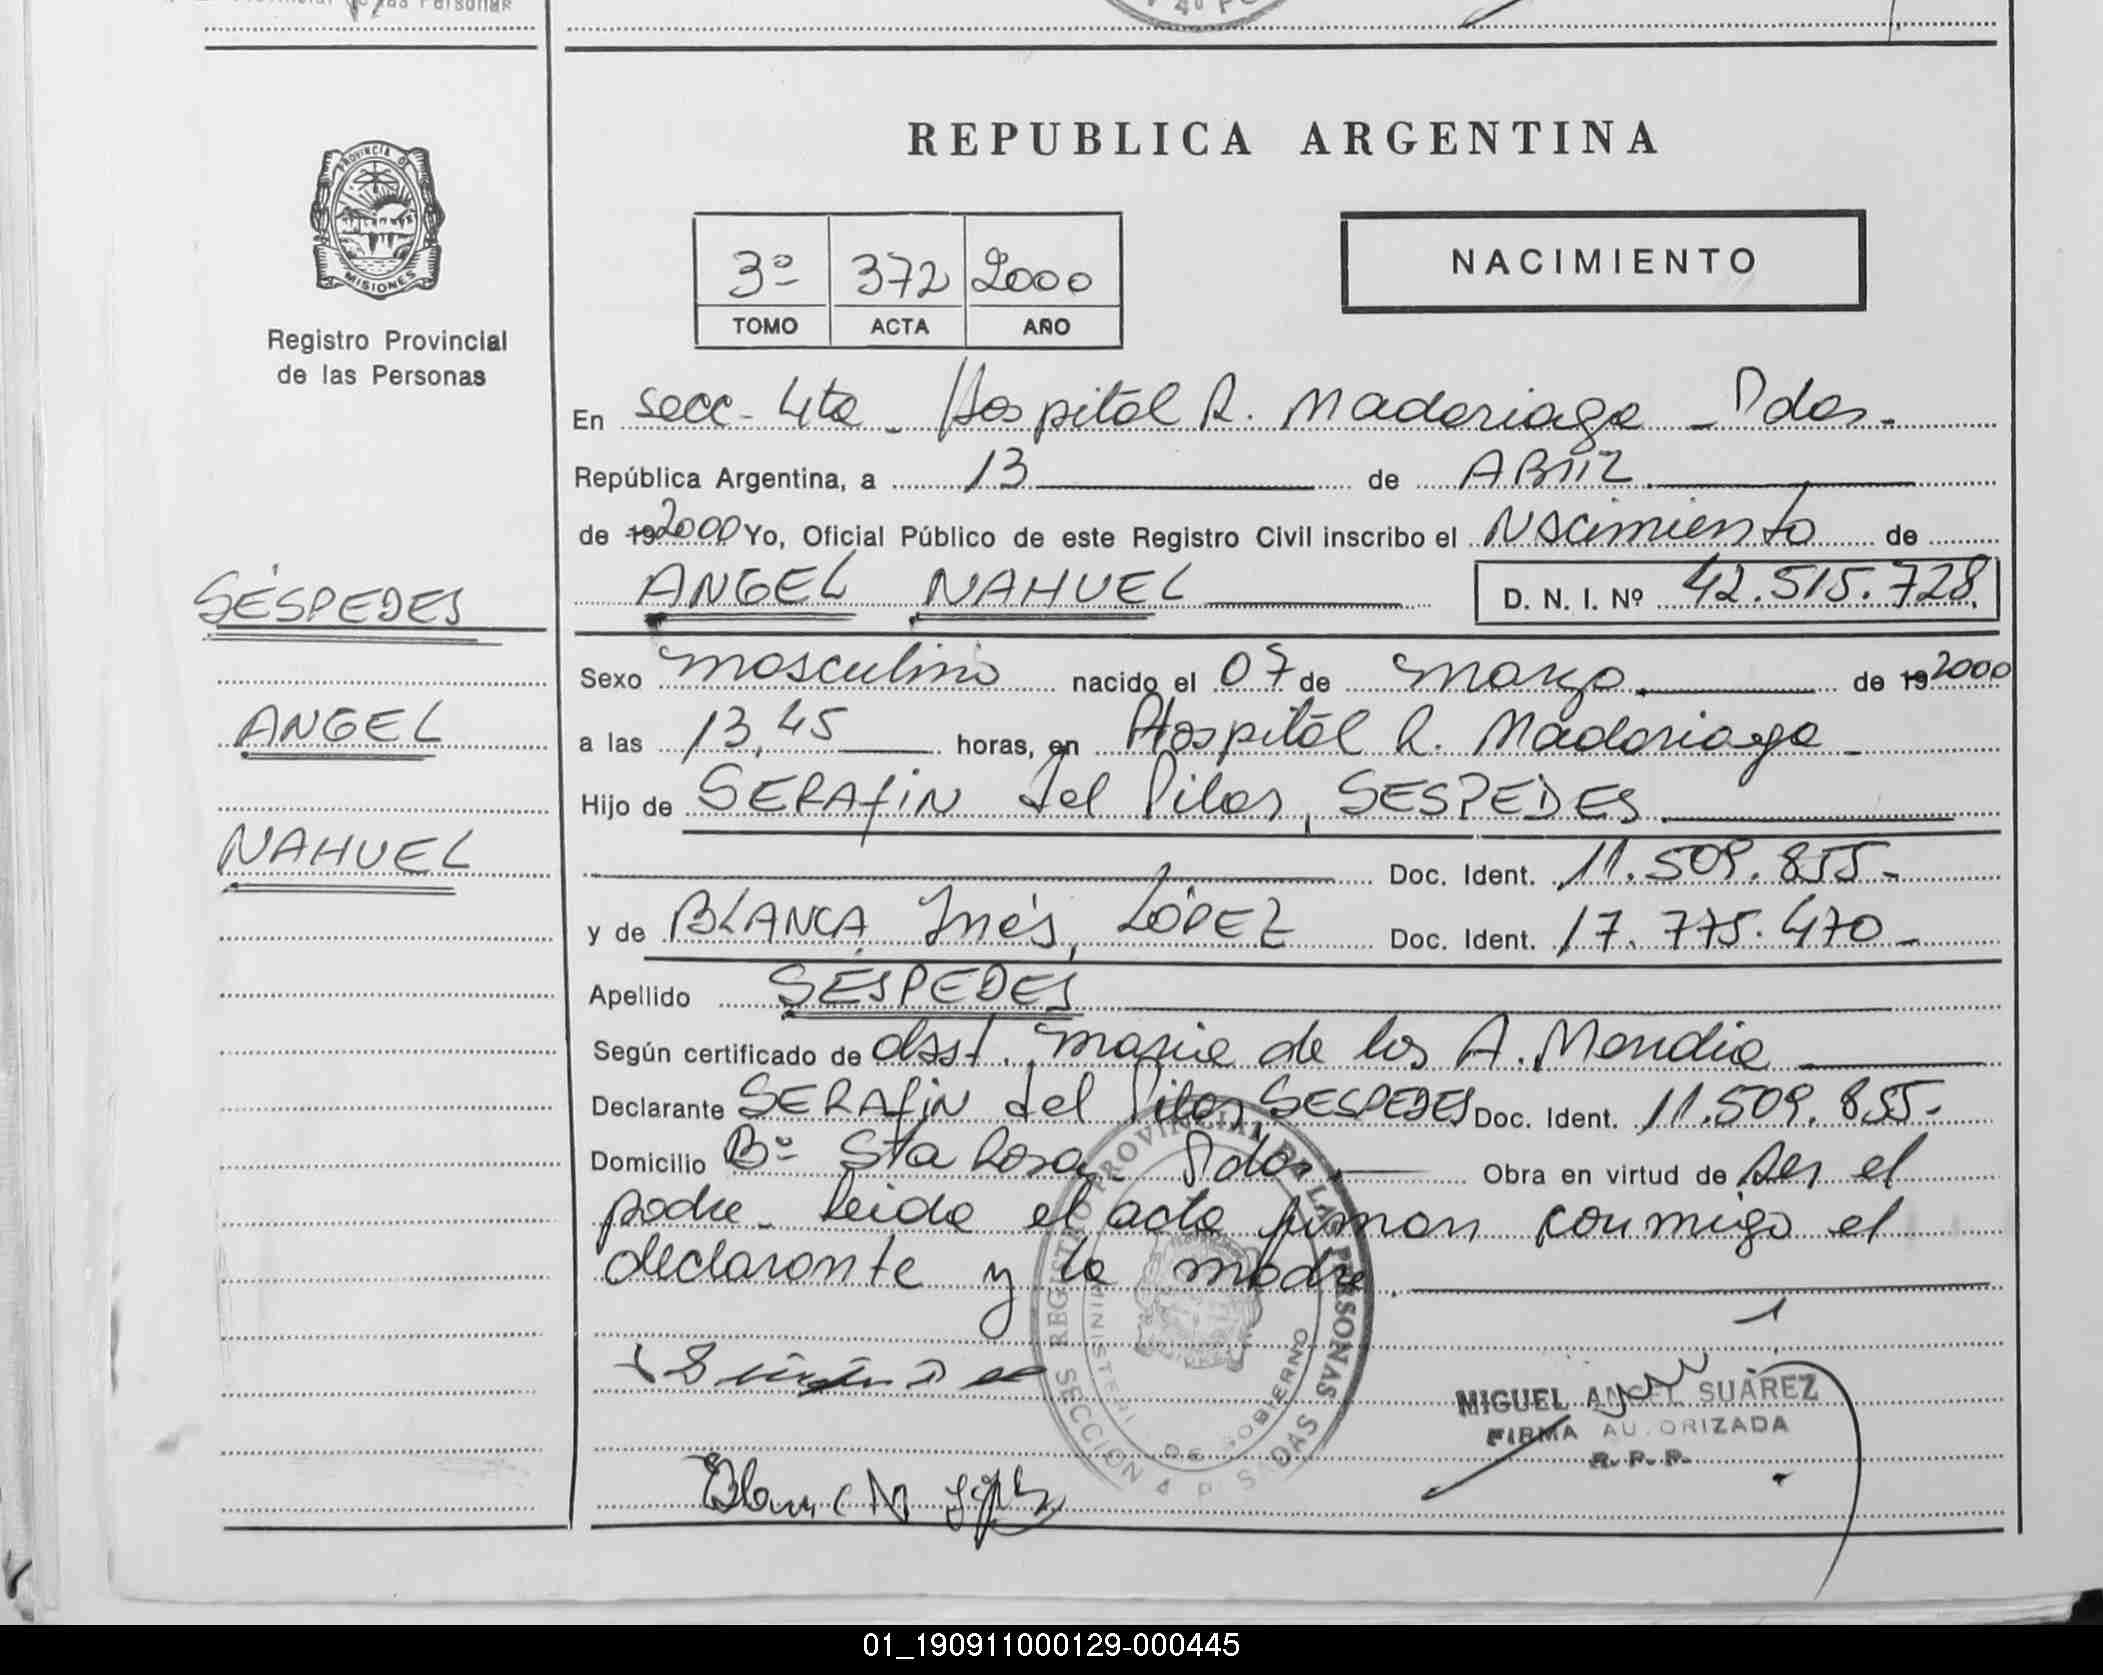 REPUBLICA ARGENTINA
PROVINCIA DE
MISIONES
Registro Provincial
de las Personas
3º 372 2000
TOMO ACTA AÑO
NACIMIENTO
En Secc- 4ta - Hospital R. Madariaga - Pdas.-
República Argentina, a 13 de ABRIL
de 19 2000 Yo, Oficial Público de este Registro Civil inscribo el Nacimiento de
ANGEL NAHUEL D. N. I. Nº 42.515.728
SÉSPEDES
ANGEL
NAHUEL
Sexo masculino nacido el 07 de marzo de 19 2000
a las 13,45 horas, en Hospital R. Madariaga -
Hijo de SERAfiN del Pilar, SESPEDES
Doc. Ident. 11.509.855-
y de BLANCA Inés, LÓPEZ Doc. Ident. 17.775.470-
Apellido SÉSPEDES
Según certificado de obst. maria de los A. Mendia
Declarante SERAfiN del Pilar SESPEDES Doc. Ident. 11.509.855-
Domicilio Bº Sta Rosa Pdas, Obra en virtud de ser el
padre - leida el acta firman conmigo el
declarante y la madre.
REGISTRO PROVINCIAL DE LAS PERSONAS
MINISTERI DE GOBIERNO
SECCION 4 P SADAS
MIGUEL ANGEL SUÁREZ
FIRMA AU ORIZADA
R. P. P.
01_190911000129-000445